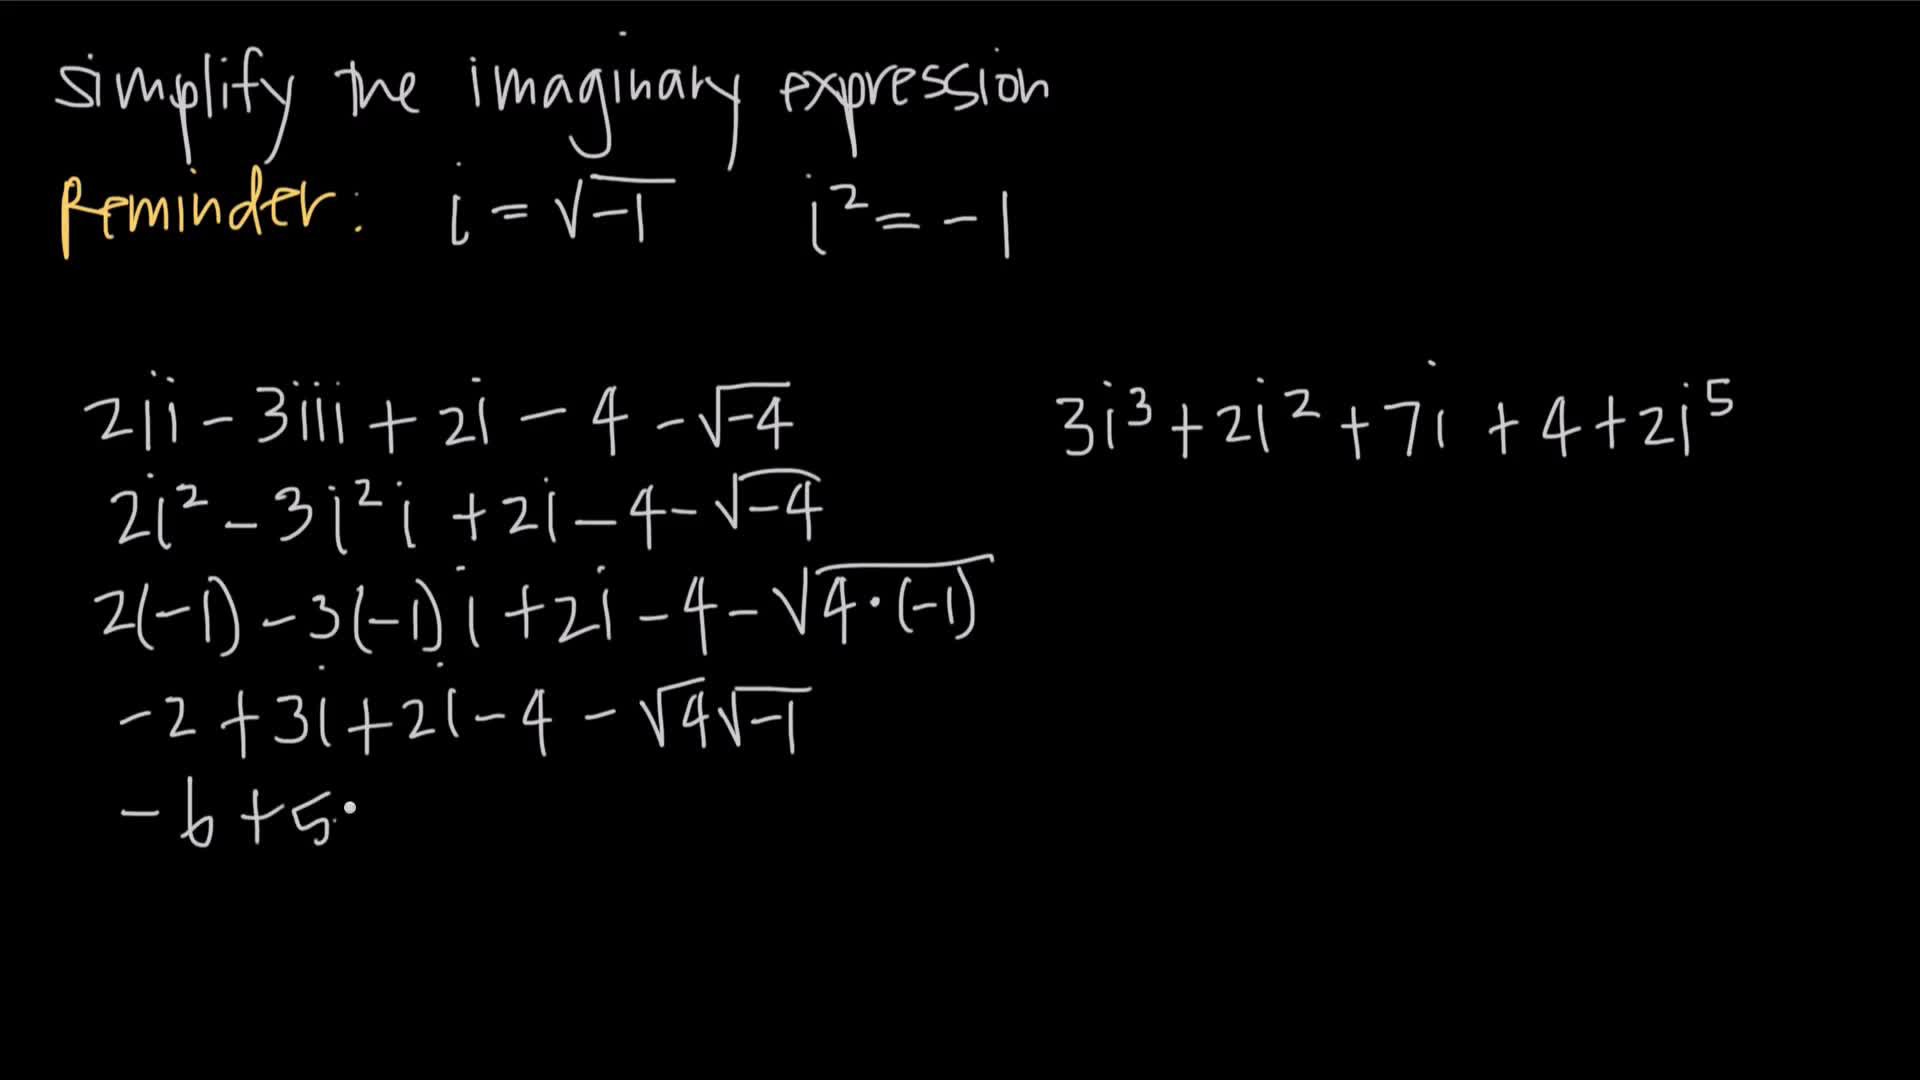 simplify the imaginary expression
Reminder: i = √-1 i² = -1
2ii - 3iii + 2i - 4 - √-4
2i² - 3i²i + 2i - 4 - √-4
2(-1) - 3(-1)i + 2i - 4 - √4·(-1)
-2 + 3i + 2i - 4 - √4√-1
-6 + 5
3i³ + 2i² + 7i + 4 + 2i⁵